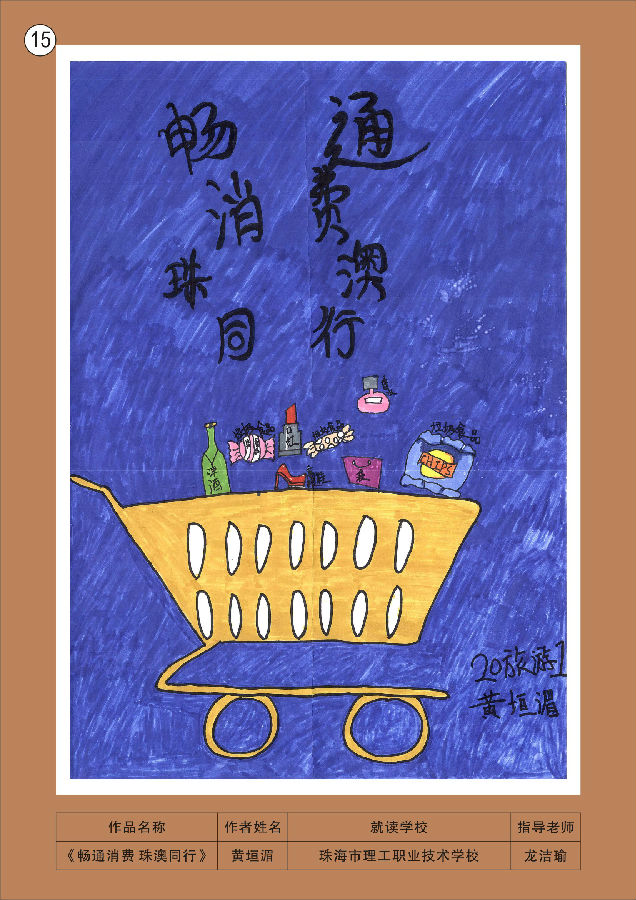 15
畅通
消费
珠澳
同行
洋酒
垃圾食品
口红
垃圾食品
垃圾食品
CHIPS
20旅游1
黄垣湄
作品名称 作者姓名 就读学校 指导老师
《畅通消费 珠澳同行》 黄垣湄 珠海市理工职业技术学校 龙洁瑜